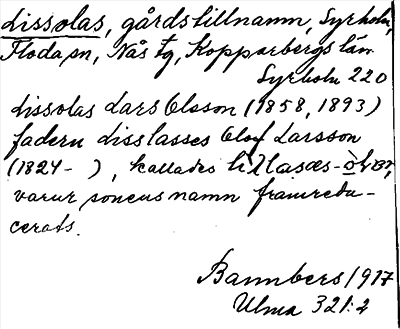 Lissolas, gårdstillnamn, Syrholn,
Floda sn, Nås tg, Kopparbergs län
Syrholn 220
Lissolas Lars Olsson (1858, 1893)
fadern Lisslasses Olof Larsson
(1824- ), kallades
varur sonens namn framredu-
cerats.
Bannbers 1917
Ulma 321:2